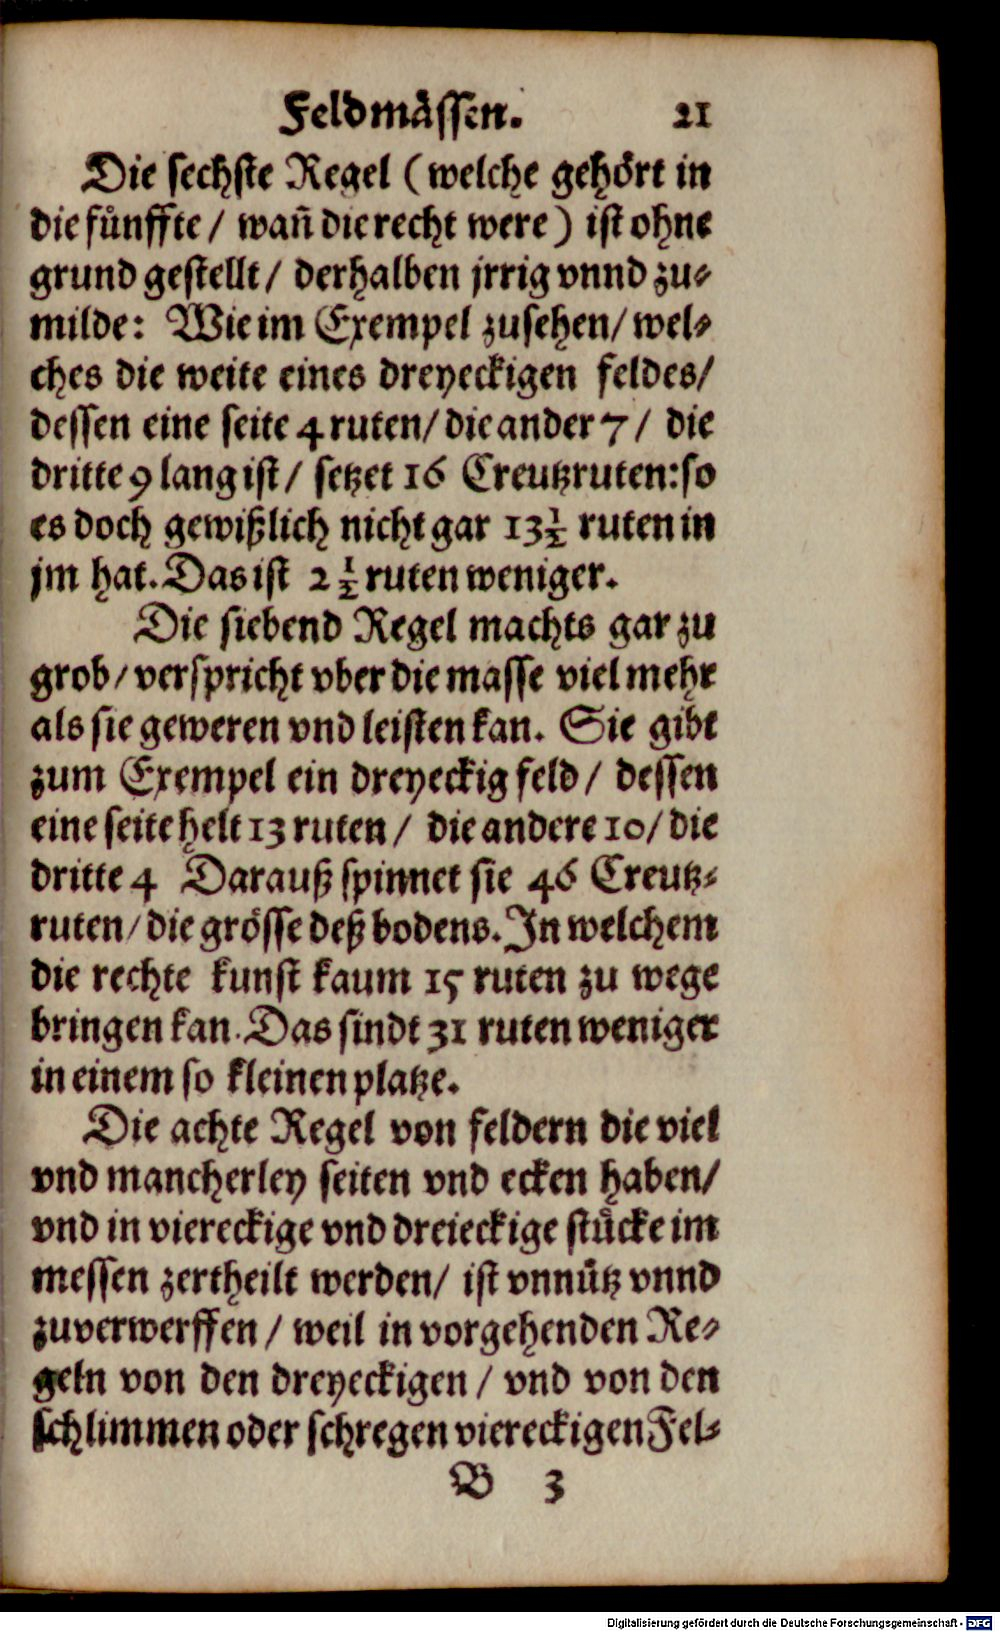 Feldmåssen. 21
Die sechste Regel (welche gehört in
die fůnffte / wañ die recht were) ist ohne
grund gestellt / derhalben jrrig vnnd zu-
milde: Wie im Exempel zusehen / wel-
ches die weite eines dreyeckigen feldes /
dessen eine seite 4 ruten / die ander 7 / die
dritte 9 lang ist / setzet 16 Creutzruten: so
es doch gewißlich nicht gar 13½ ruten in
jm hat. Das ist 2½ ruten weniger.
Die siebend Regel machts gar zu
grob / verspricht vber die masse viel mehr
als sie geweren vnd leisten kan. Sie gibt
zum Exempel ein dreyeckig feld / dessen
eine seite helt 13 ruten / die andere 10 / die
dritte 4 Darauß spinnet sie 46 Creutz-
ruten / die grösse deß bodens. In welchem
die rechte kunst kaum 15 ruten zu wege
bringen kan. Das sindt 31 ruten weniger
in einem so kleinen platze.
Die achte Regel von feldern die viel
vnd mancherley seiten vnd ecken haben /
vnd in viereckige vnd dreieckige stůcke im
messen zertheilt werden / ist vnnůtz vnnd
zuverwerffen / weil in vorgehenden Re-
geln von den dreyeckigen / vnd von den
schlimmen oder schregen viereckigen Fel-
B 3
Digitalisierung gefördert durch die Deutsche Forschungsgemeinschaft - DFG